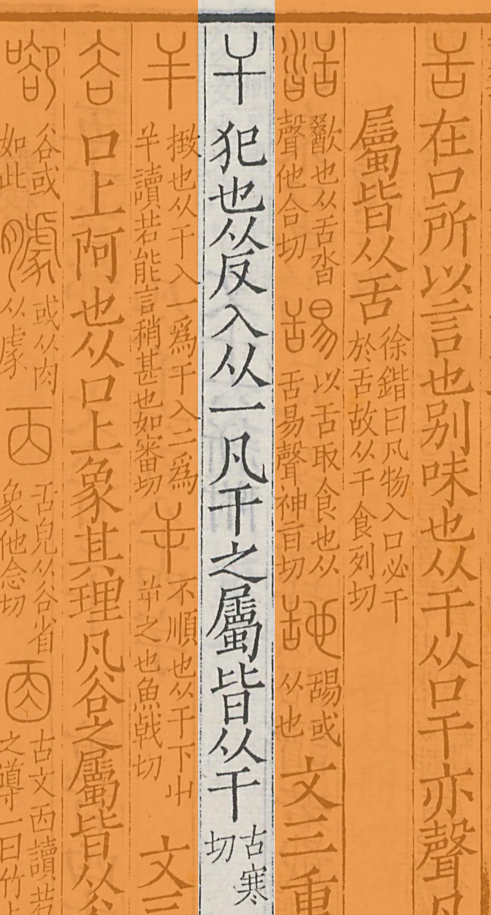 舌 在口所以言也别味也从干从口干亦聲凡
屬皆从舌 徐鍇曰凡物入口必干於舌故从干食列切
歠也从舌沓聲他合切 以舌取食也从舌易聲神旨切 或从也 文三 重
干 犯也从反入从一凡干之屬皆从干 古寒切
撖也从干入一爲干入二爲𢆉讀若能言稍甚也如審切 屰 不順也从干下屮屰之也魚戟切 文三
谷 口上阿也从口上象其理凡谷之屬皆从谷
谷或如此 或从肉从豦 㐁 舌皃从谷省象他念切 古文㐁讀若之導一曰竹上